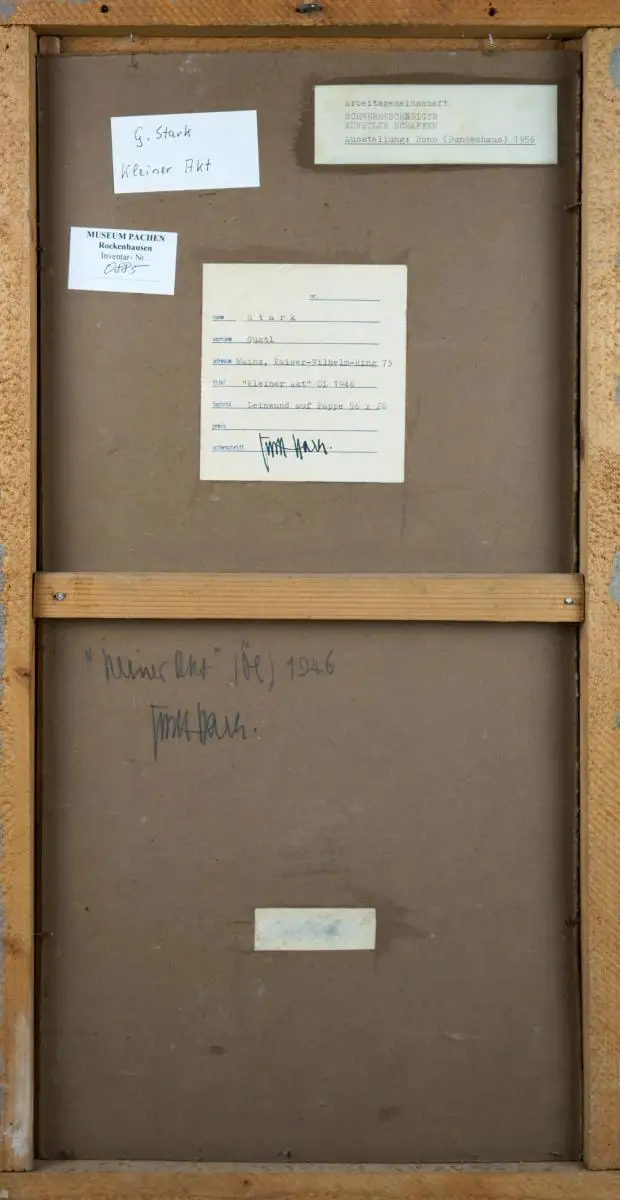 G. Stark
Kleiner Akt
Arbeitsgemeinschaft
SCHWERBESCHÄDIGTE
KÜNSTLER SCHAFFEN
Ausstellung: Bonn (Bundeshaus) 1956
MUSEUM PACHEN
Rockenhausen
Inventar- Nr.
0885
nr.
name S t a r k
vorname Gustl
adresse Mainz, Kaiser-Wilhelm-Ring 73
titel "Kleiner Akt" ÖL 1946
technik Leinwand auf Pappe 56 x 26
preis
unterschrift Gustl Stark.
"Kleiner Akt" (Öl) 1946
Gustl Stark.